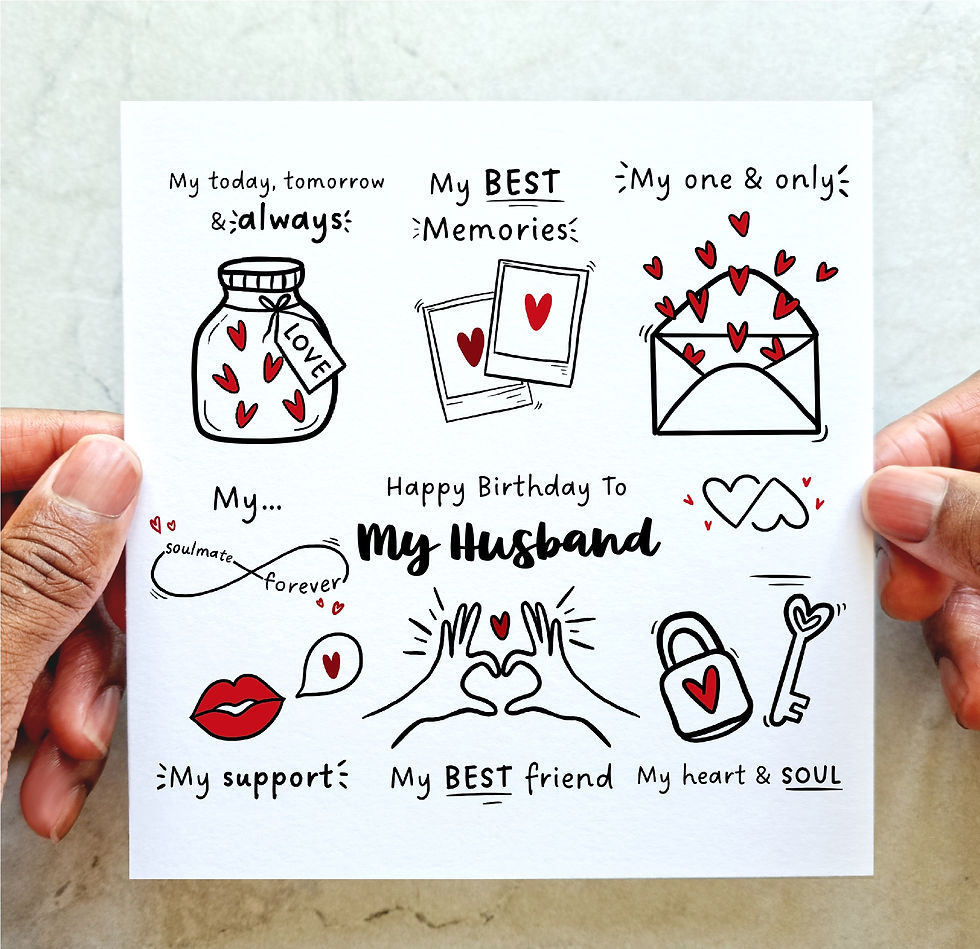 My today, tomorrow
& always
My BEST
Memories
My one & only
LOVE
My...
soulmate
forever
Happy Birthday To
My Husband
My support
My BEST friend
My heart & SOUL